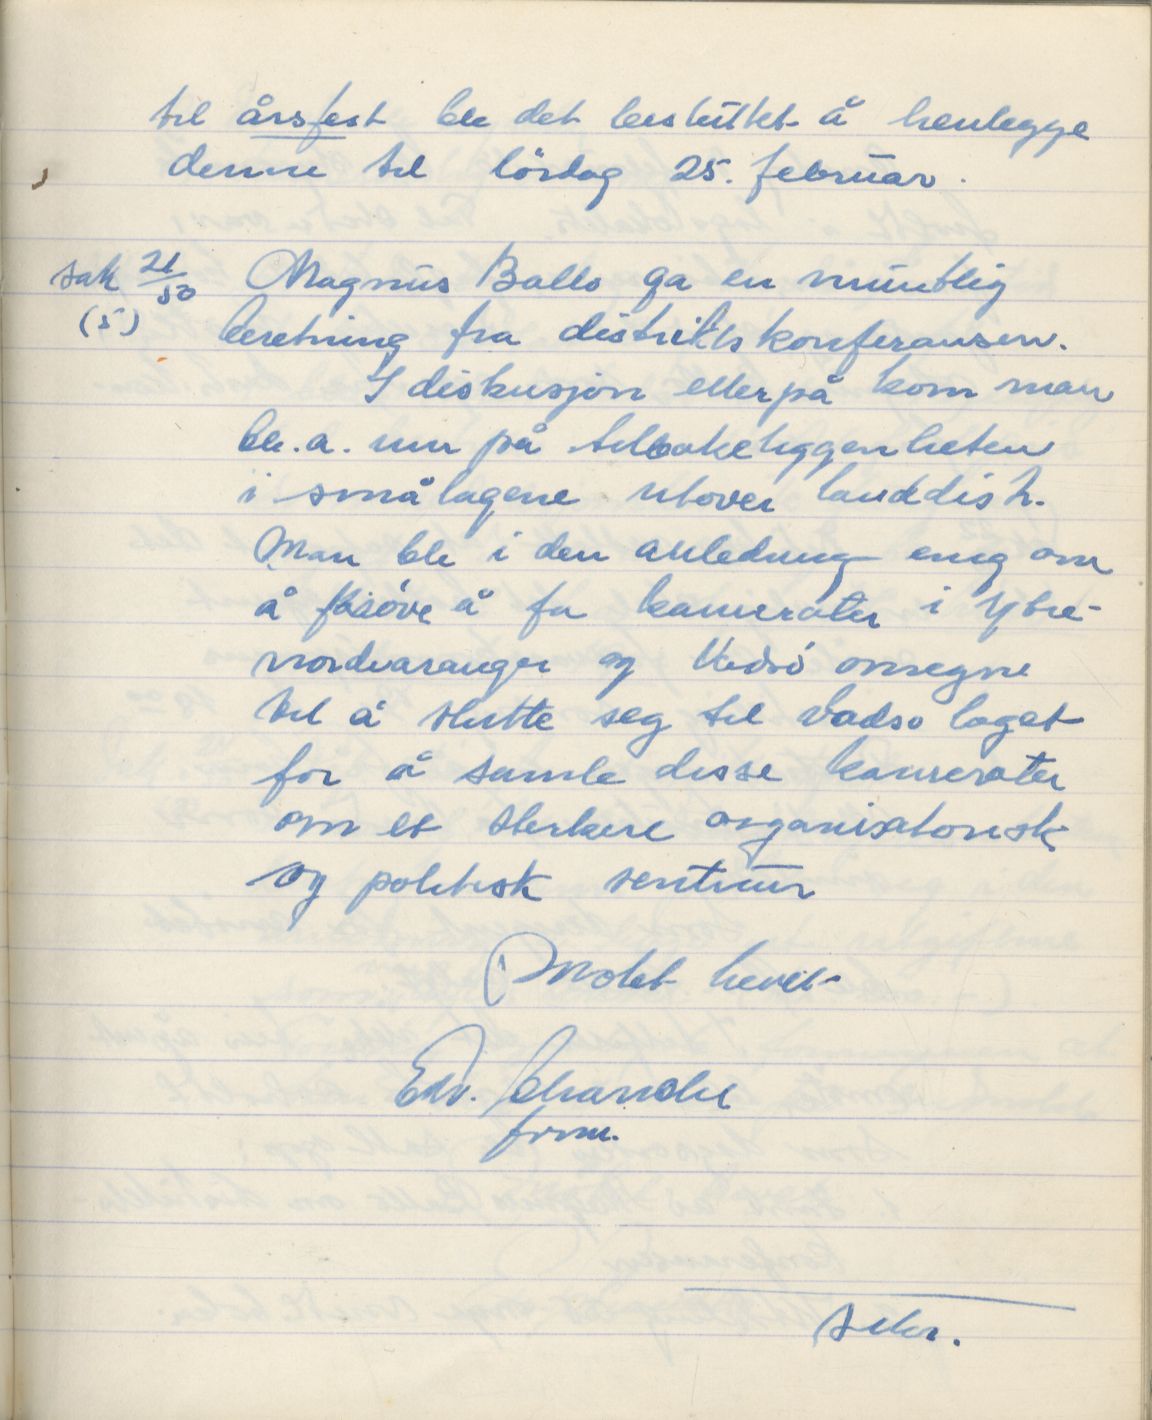 til årsfest ble det besluttet å henlegge
denne til lördag 25. februar.
sak 21/50 Magnus Ballo ga en muntlig
(5) beretning fra distriktskonferansen.
I diskusjon etterpå kom man
bl.a. inn på tilbakeliggenheten
i små lagene utover landdistr.
Man ble i den anledning enig om
å prøve å få kamerater i Ytre-
nordvaranger og Vadsö omegn
til å slutte seg til Vadsö laget
for å samle disse kamerater
om et sterkere organisatorisk
og politisk sentrum
Mötet hevet
Edv.
form.
Sekr.